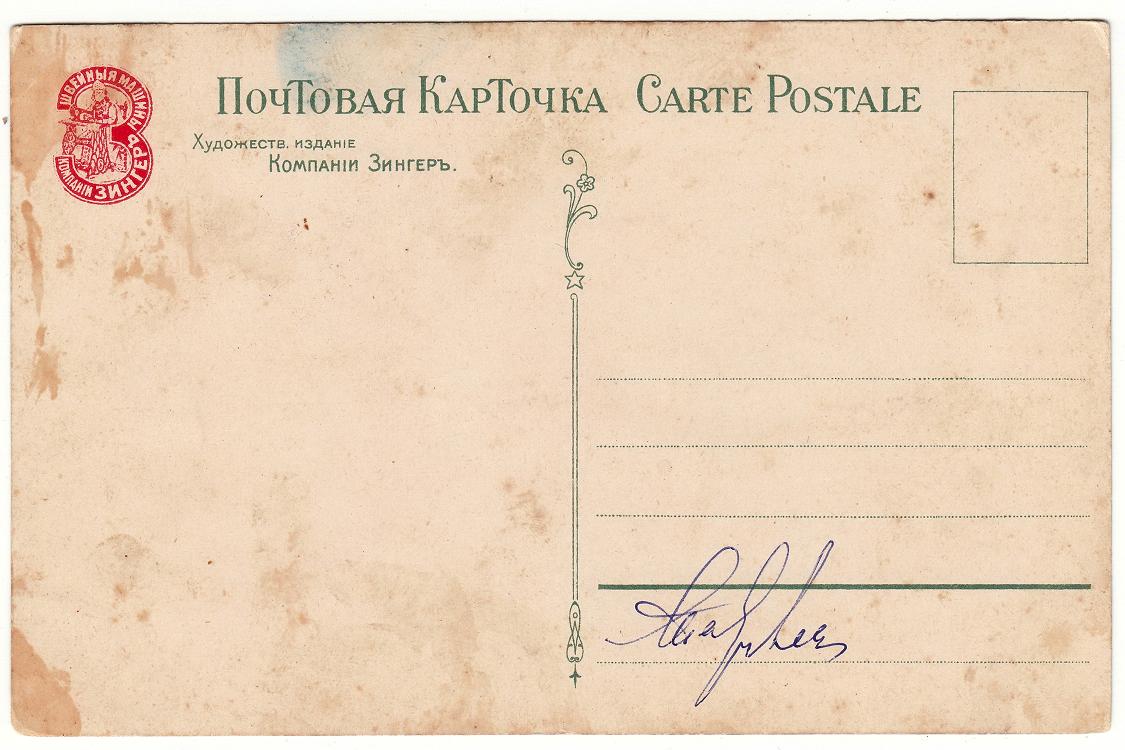 ШВЕЙНЫЯ МАШИНЫ
КОМПАНІИ ЗИНГЕРЪ
ПОЧТОВАЯ КАРТОЧКА CARTE POSTALE
ХУДОЖЕСТВ. ИЗДАНІЕ
КОМПАНІИ ЗИНГЕРЪ.